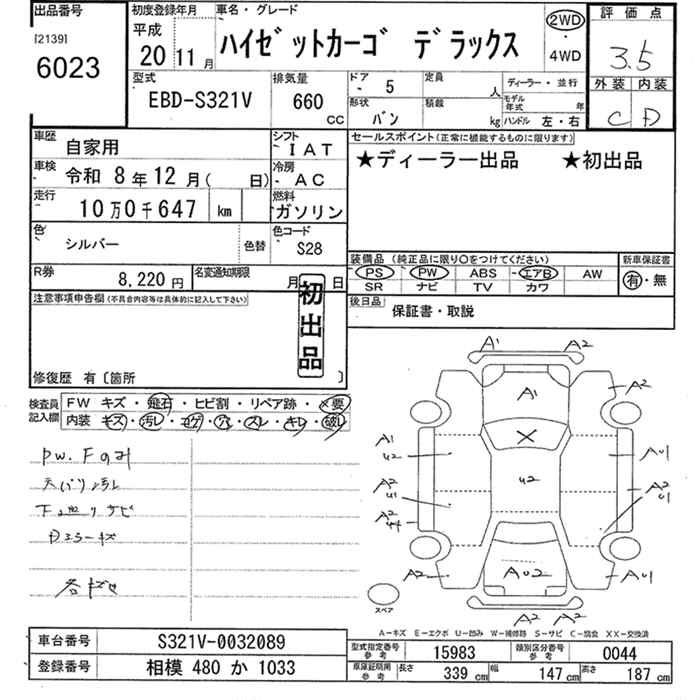 出品番号
[2139]
6023
初度登録年月
平成
20年 11月
車名・グレード
ハイゼットカーゴ デラックス
2WD
・
4WD
評価点
3.5
外装 内装
C D
型式
EBD-S321V
排気量
660
CC
ドア
5
形状
バン
定員
人
積載
kg
ディーラー・並行
モデル年式 年
ハンドル 左・右
車歴
自家用
シフト
IAT
車検
令和 8年 12月( 日)
冷房
AC
走行
10万0千647 km
燃料
ガソリン
色
シルバー
色替
色コード
S28
R券
8,220円
名変通知期限
月 日
セールスポイント(正常に機能するものに限ります)
★ディーラー出品 ★初出品
装備品 (純正品に限り○をつけてください)
PS PW ABS エアB AW
SR ナビ TV カワ
新車保証書
有・無
後日品
保証書・取説
注意事項申告欄(不具合内容等は具体的に記入して下さい)
初出品
修復歴 有〔箇所 〕
検査員記入欄
FW キズ・飛石・ヒビ割・リペア跡・×要
内装 キズ・汚レ・コゲ・穴・スレ・キレ・破レ
PW.Fのみ
天バリ汚レ
下廻りサビ
Dミラーキズ
各キズ
A1 A2
A1
A2
A1
U2
U2
A2
U1
A2
A2
A01
A2
U1
A01
A02
A2 A2
スペア
A-キズ E-エクボ U-凹み W-補修跡 S-サビ C-腐食 XX-交換済
車台番号
S321V-0032089
登録番号
相模 480 か 1033
型式指定番号
参考
15983
類別区分番号
参考
0044
車庫証明用
参考
長さ 339 cm 幅 147 cm 高さ 187 cm